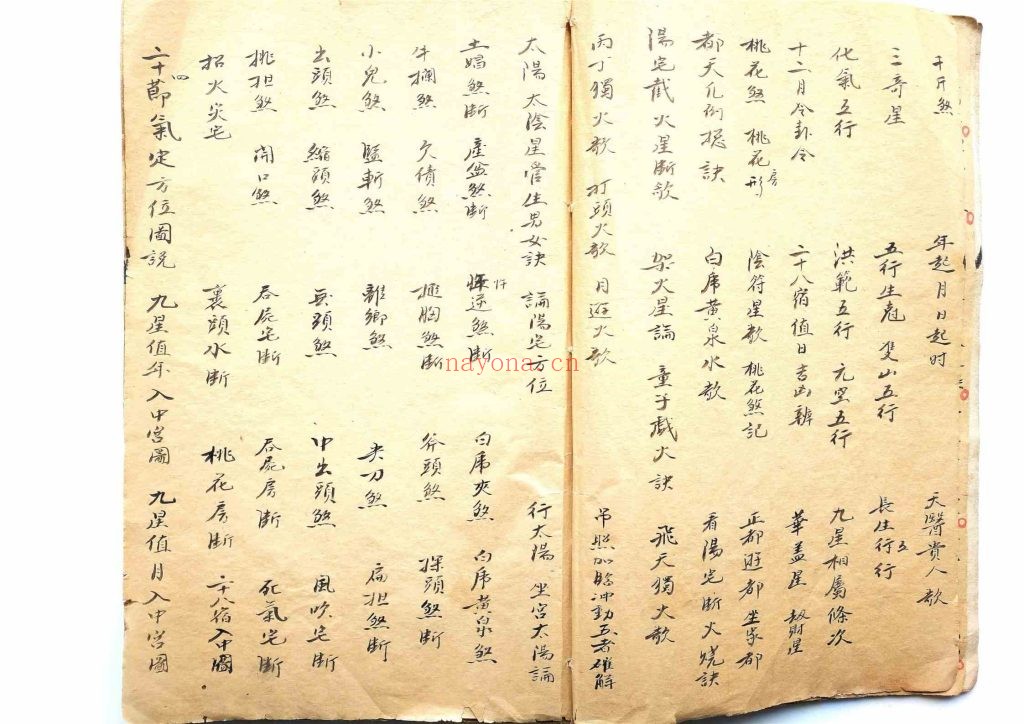 千斤煞 年起月日起时 天醫貴人歌
三奇星 五行生尅 雙山五行 長生五行
化氣五行 洪範五行 元空五行 九星相屬條次
十二月令卦令 二十八宿值日吉凶辨 華盖星 劫財星
桃花煞 桃花房形 陰符星歌 桃花煞記 正都遊都 坐家都
都天凡例捴訣 白虎黄泉水歌 看陽宅断火燒訣
陽宅截火星断歌 架火星論 童子戲火訣 飛天獨火歌
丙丁獨火歌 打頭火歌 月遊火歌 吊照加臨冲動五者確解
太陽太陰星管生男女訣 論陽宅方位 行太陽 坐宫太陽論
土娼煞断 產盆煞断 忤逆煞断 白虎夾煞 白虎黄泉煞
牛欄煞 欠債煞 搥胸煞断 斧頭煞 探頭煞断
小鬼煞 腰斬煞 離鄉煞 尖刀煞 扁担煞断
出頭煞 縮頭煞 中出頭煞 風吹宅断
桃担煞 開口煞 吞屍宅断 吞屍房断 死氣宅断
招火炎宅 裏頭水断 桃花房断 二十八宿入中圖
二十四節氣定方位圖説 九星值年入中宫圖 九星值月入中宫圖
nayona.cn